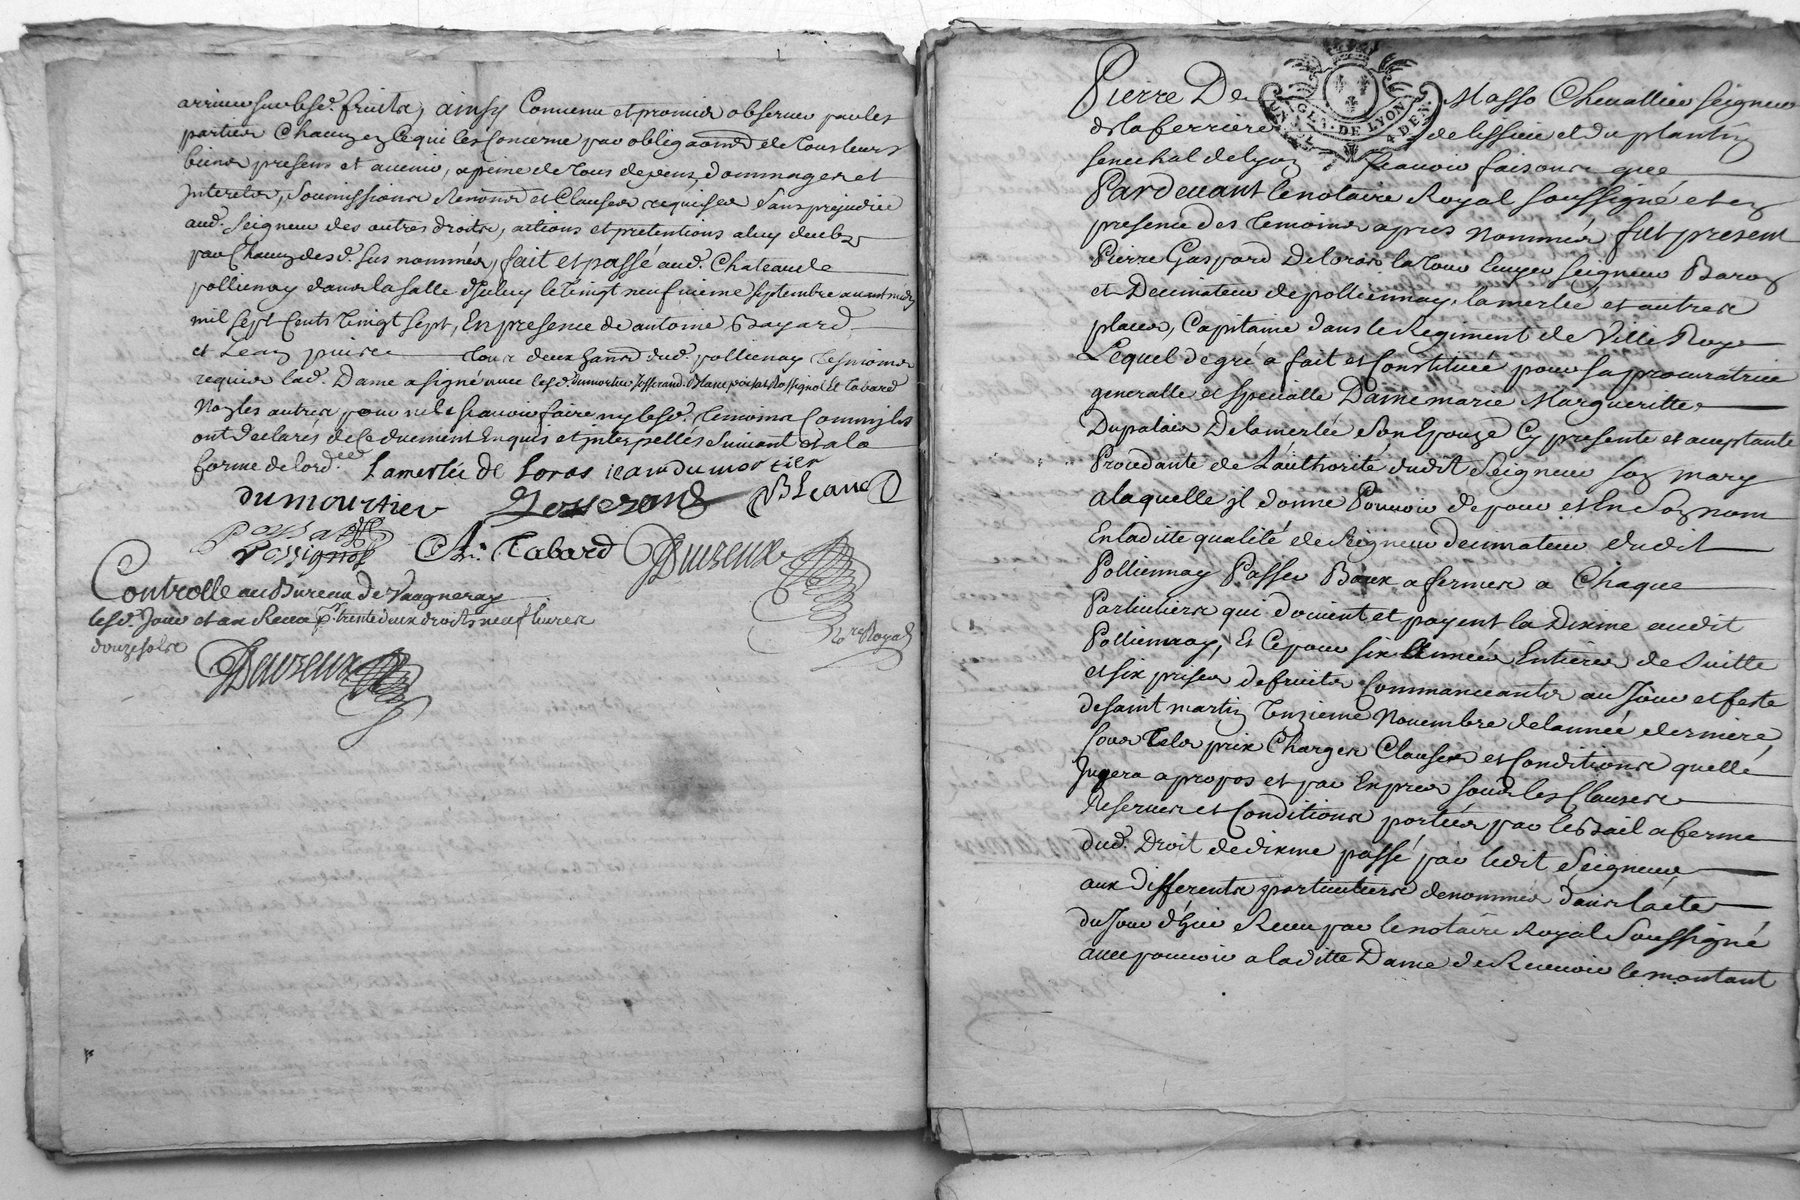 arriver sur lesd. fruits, ainsy Convenu et promis observer par les
parties Chacun en Ce qui les Concerne par obligaõns de Tous leurs
biens presens et avenir, a peine de Tous depens, dommages et
Interets, soumissions Renonõns et Clauses requises sans prejudice
aud. Seigneur des autres droits, actions et pretentions a luy deubs
par Chacun desd. sus nommés, fait et passé aud. Chateau de
pollienay dans la salle d'Iceluy le Vingt neufvieme septembre avant midy
mil sept Cents Vingt sept, En presence de antoine Bayard
et Jean tous deux dud. pollienay Tesmoins
requis lad. Dame a signé avec lesd. Dumortier Josserand Blanc poissat Rossignol Et Tabard
Non les autres pour ne le scavoir faire ny lesd. Temoins Comm'ils
ont declarés de Ce duement Enquis et interpellés Suivant et a la
forme de l'ord.ce Lamerlée de Loras iean du mortier
du mourtier Josserand B Leanc
Poissat
rossignol A. Tabard Duzeux
Controllé au Bureau de Vaugneray
lesd. Jour et an Receu trente deux droits neuf livres
douze sols Nre Royal
Deuzeux
Pierre De Masso Chevallier Seigneur
de la ferriere de lissieu et du plantin
Senechal de lyon scavoir faisons que
Pardevant le notaire Royal soussigné et en
presence des Temoins apres Nommés fut present
Pierre Gaspard De loras la Tour Ecuyer Seigneur Baron
et Decimateur de pollienay, lamerlée et autres
places, Capitaine dans le Regiment de Ville Roye
Lequel de gré a fait et Constitué pour sa procuratrice
generalle et specialle Dame marie Margueritte
Dupalais De lamerlée son Epouze Cy presente et acceptante
Procedante de L'authorité dudit Seigneur son mary
a laquelle il donne Pouvoir de pour et En son nom
En laditte qualité de Seigneur decimateur dudit
Pollienay Passer Baux a fermes a Chaque
Particuliers qui doivent et payent la Dixme audit
Pollienay, Et Ce pour six Années Entieres de suitte
et six prises de fruits Commanceants au Jour et feste
de saint martin Unzieme Novembre de l'année derniere,
sous Tels prix Charges Clauses et Conditions quelle
Jugera a propos et par Exprés sous les Clauses
Reserves et Conditions portées par le Bail a ferme
dud. Droit de dixme passé par ledit Seigneur
aux differents particuliers denommés dans l'acte
du Jour d'hui Receu par le notaire Royal Soussigné
avec pouvoir a laditte Dame de Recevoir le montant
GEN. DE LYON
4 DEN.